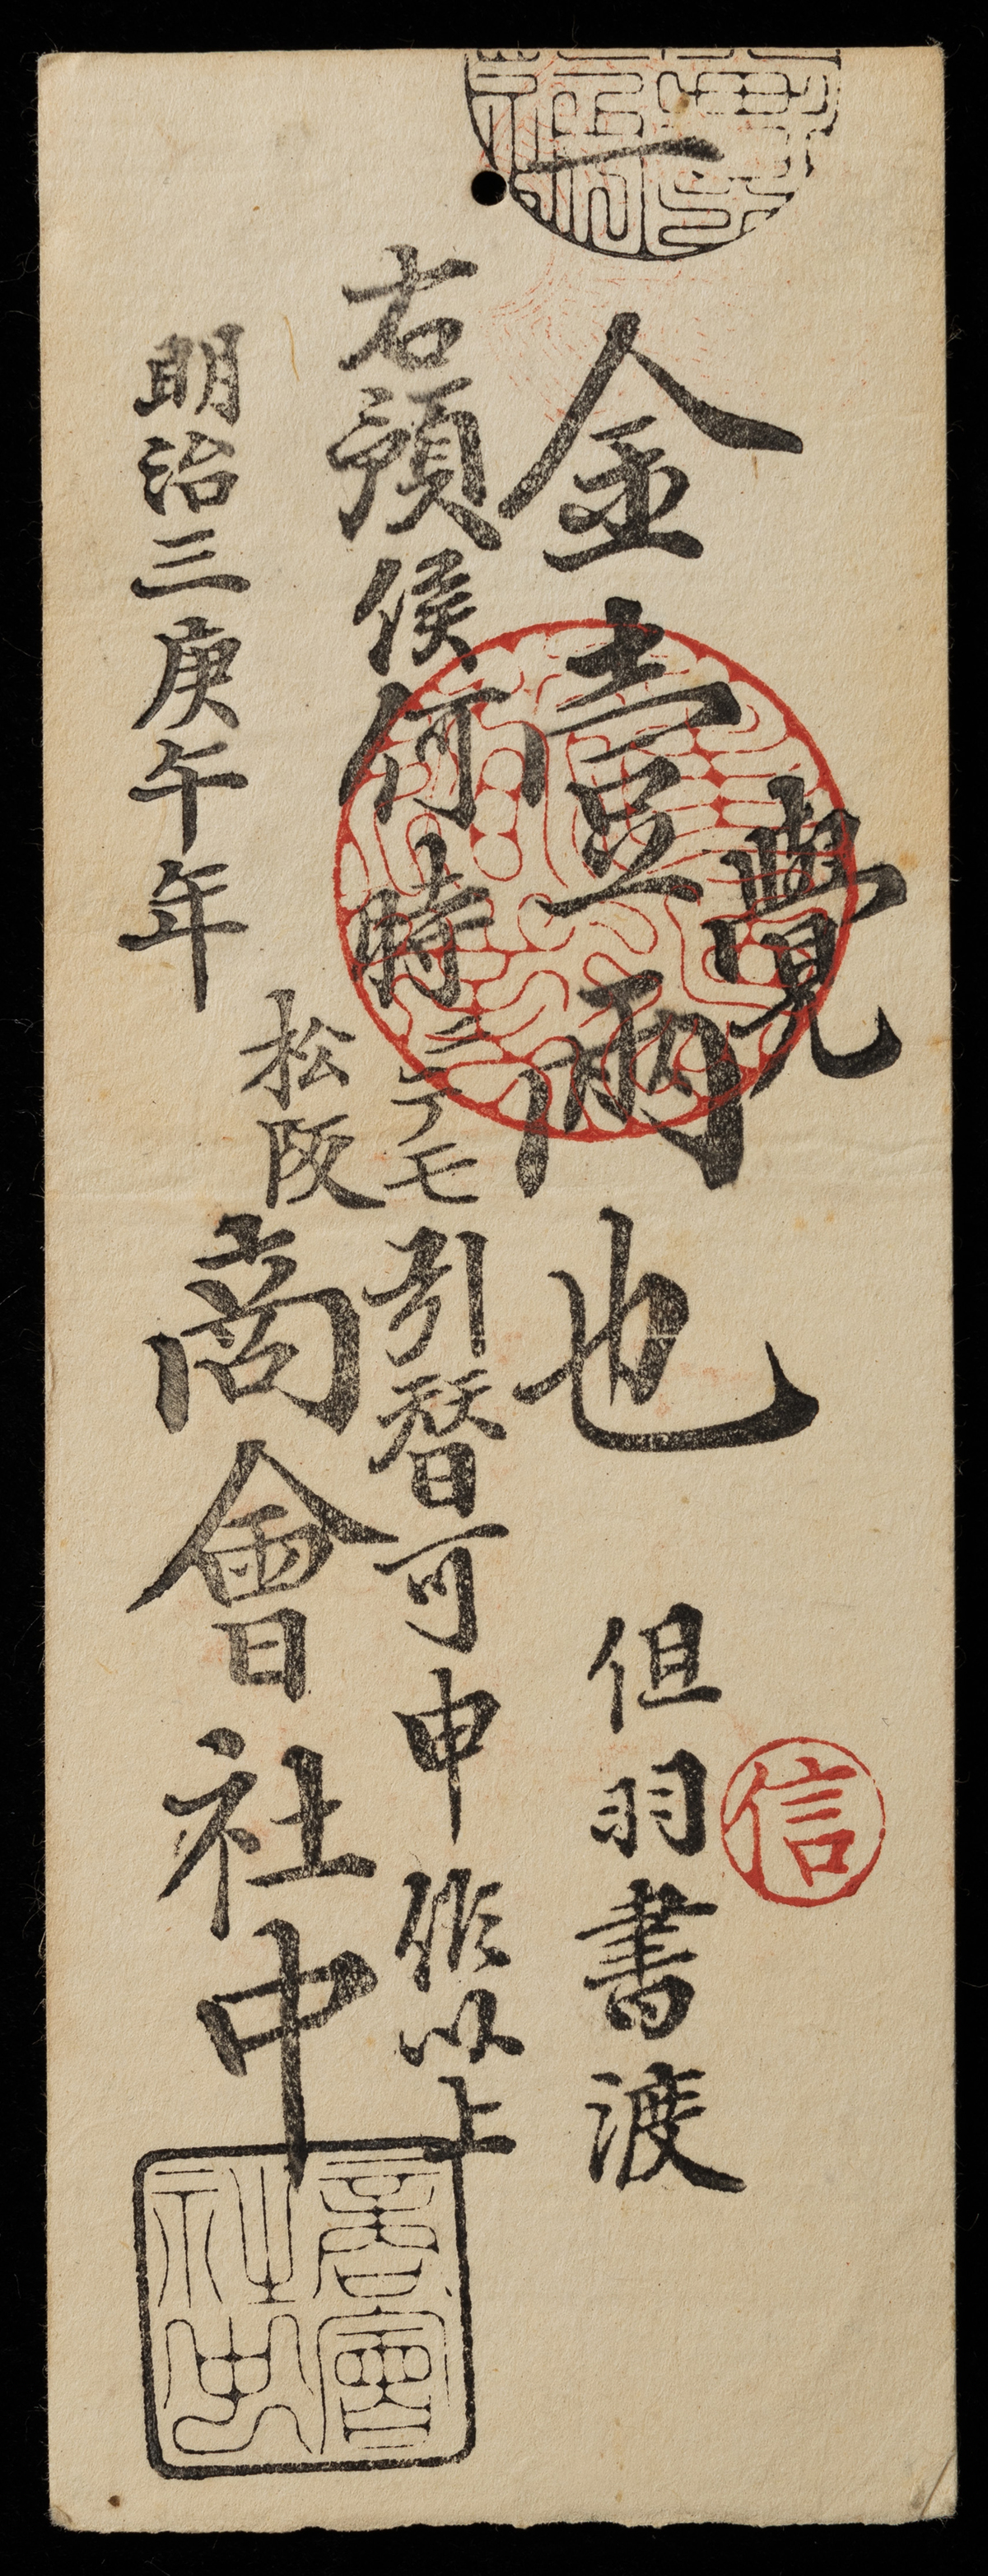 覺
一金壹兩也 但羽書渡
信
右預候何時ニテモ引替可申候以上
明治三庚午年
松阪商會社中
商會
社